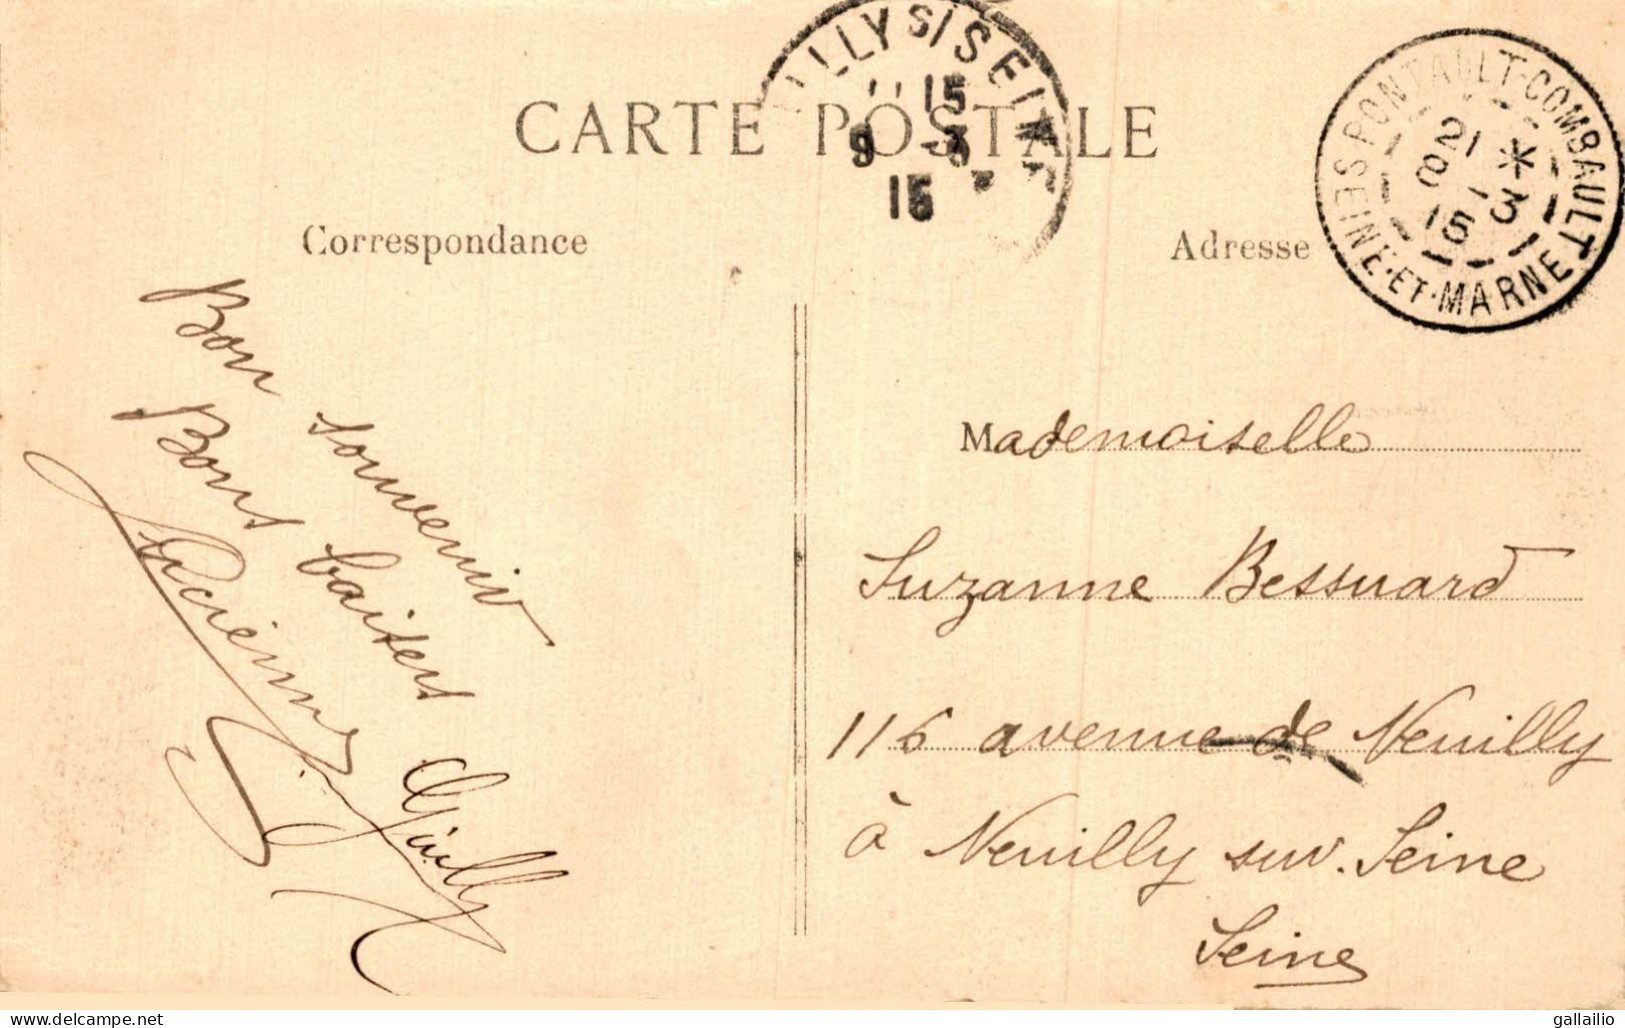 CARTE POSTALE
ILLY S/SEINE
15
9 -3
15
PONTAULT-COMBAULT
21 *
8 -3
15
SEINE-ET-MARNE
Correspondance
Adresse
Bon souvenir
Bons baisers
Lucienne Gailly
Mademoiselle
Suzanne Bessuard
116 avenue de Neuilly
à Neuilly sur. Seine
Seine
delcampe.net
gallailio